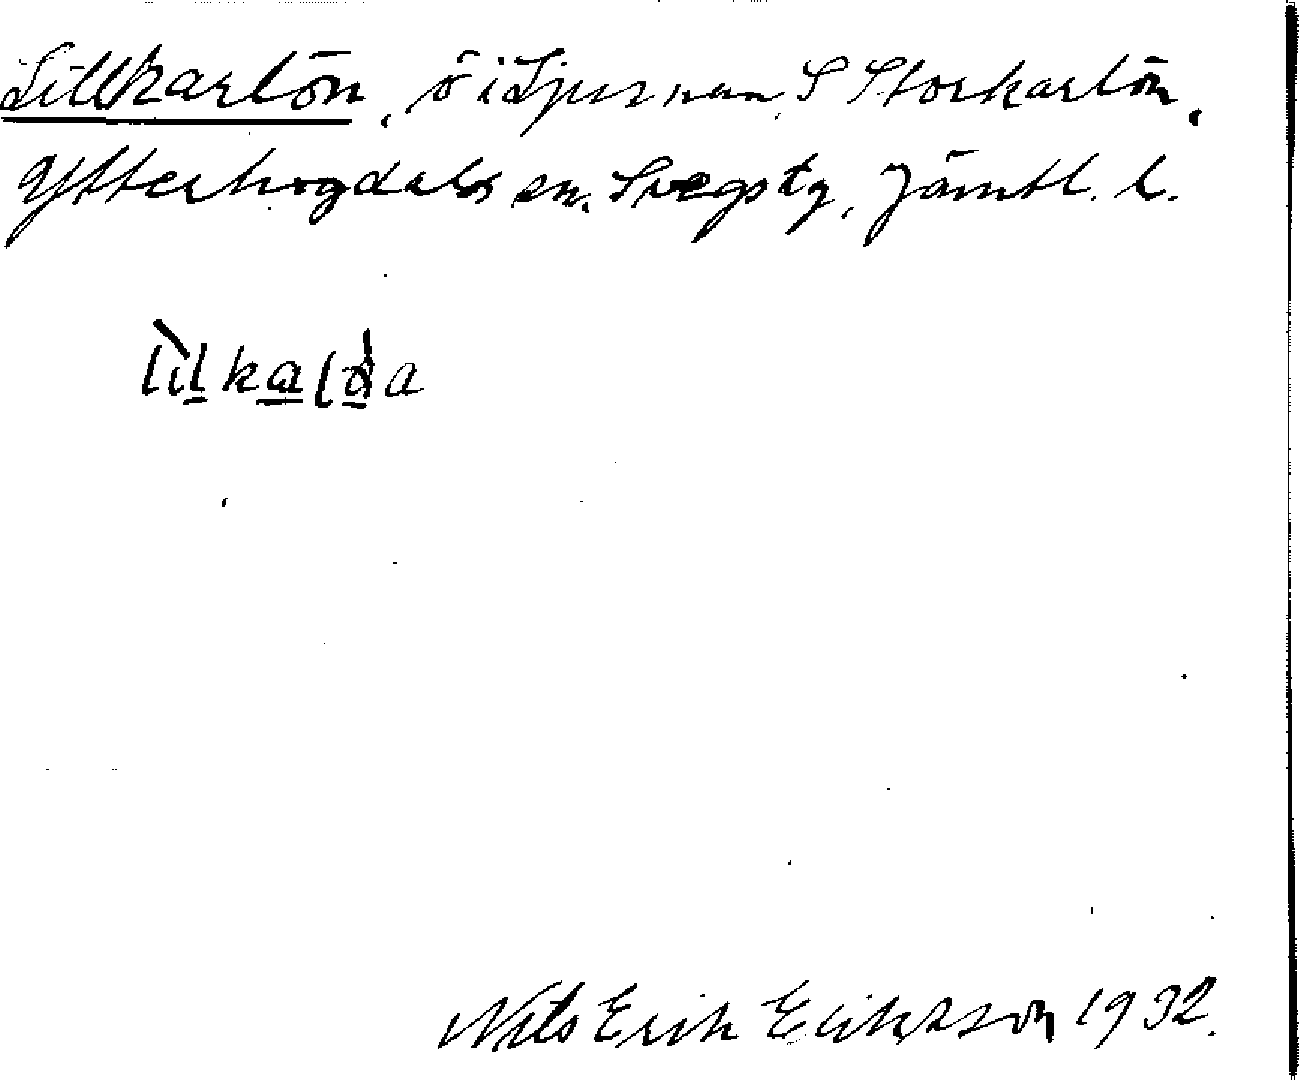 Lillkarlön, ö i Ljusnan, S Storkarlön,
Ytterhogdals sn. Svegs tg, Jämtl. l.
Nils Erik Eriksson 1932.